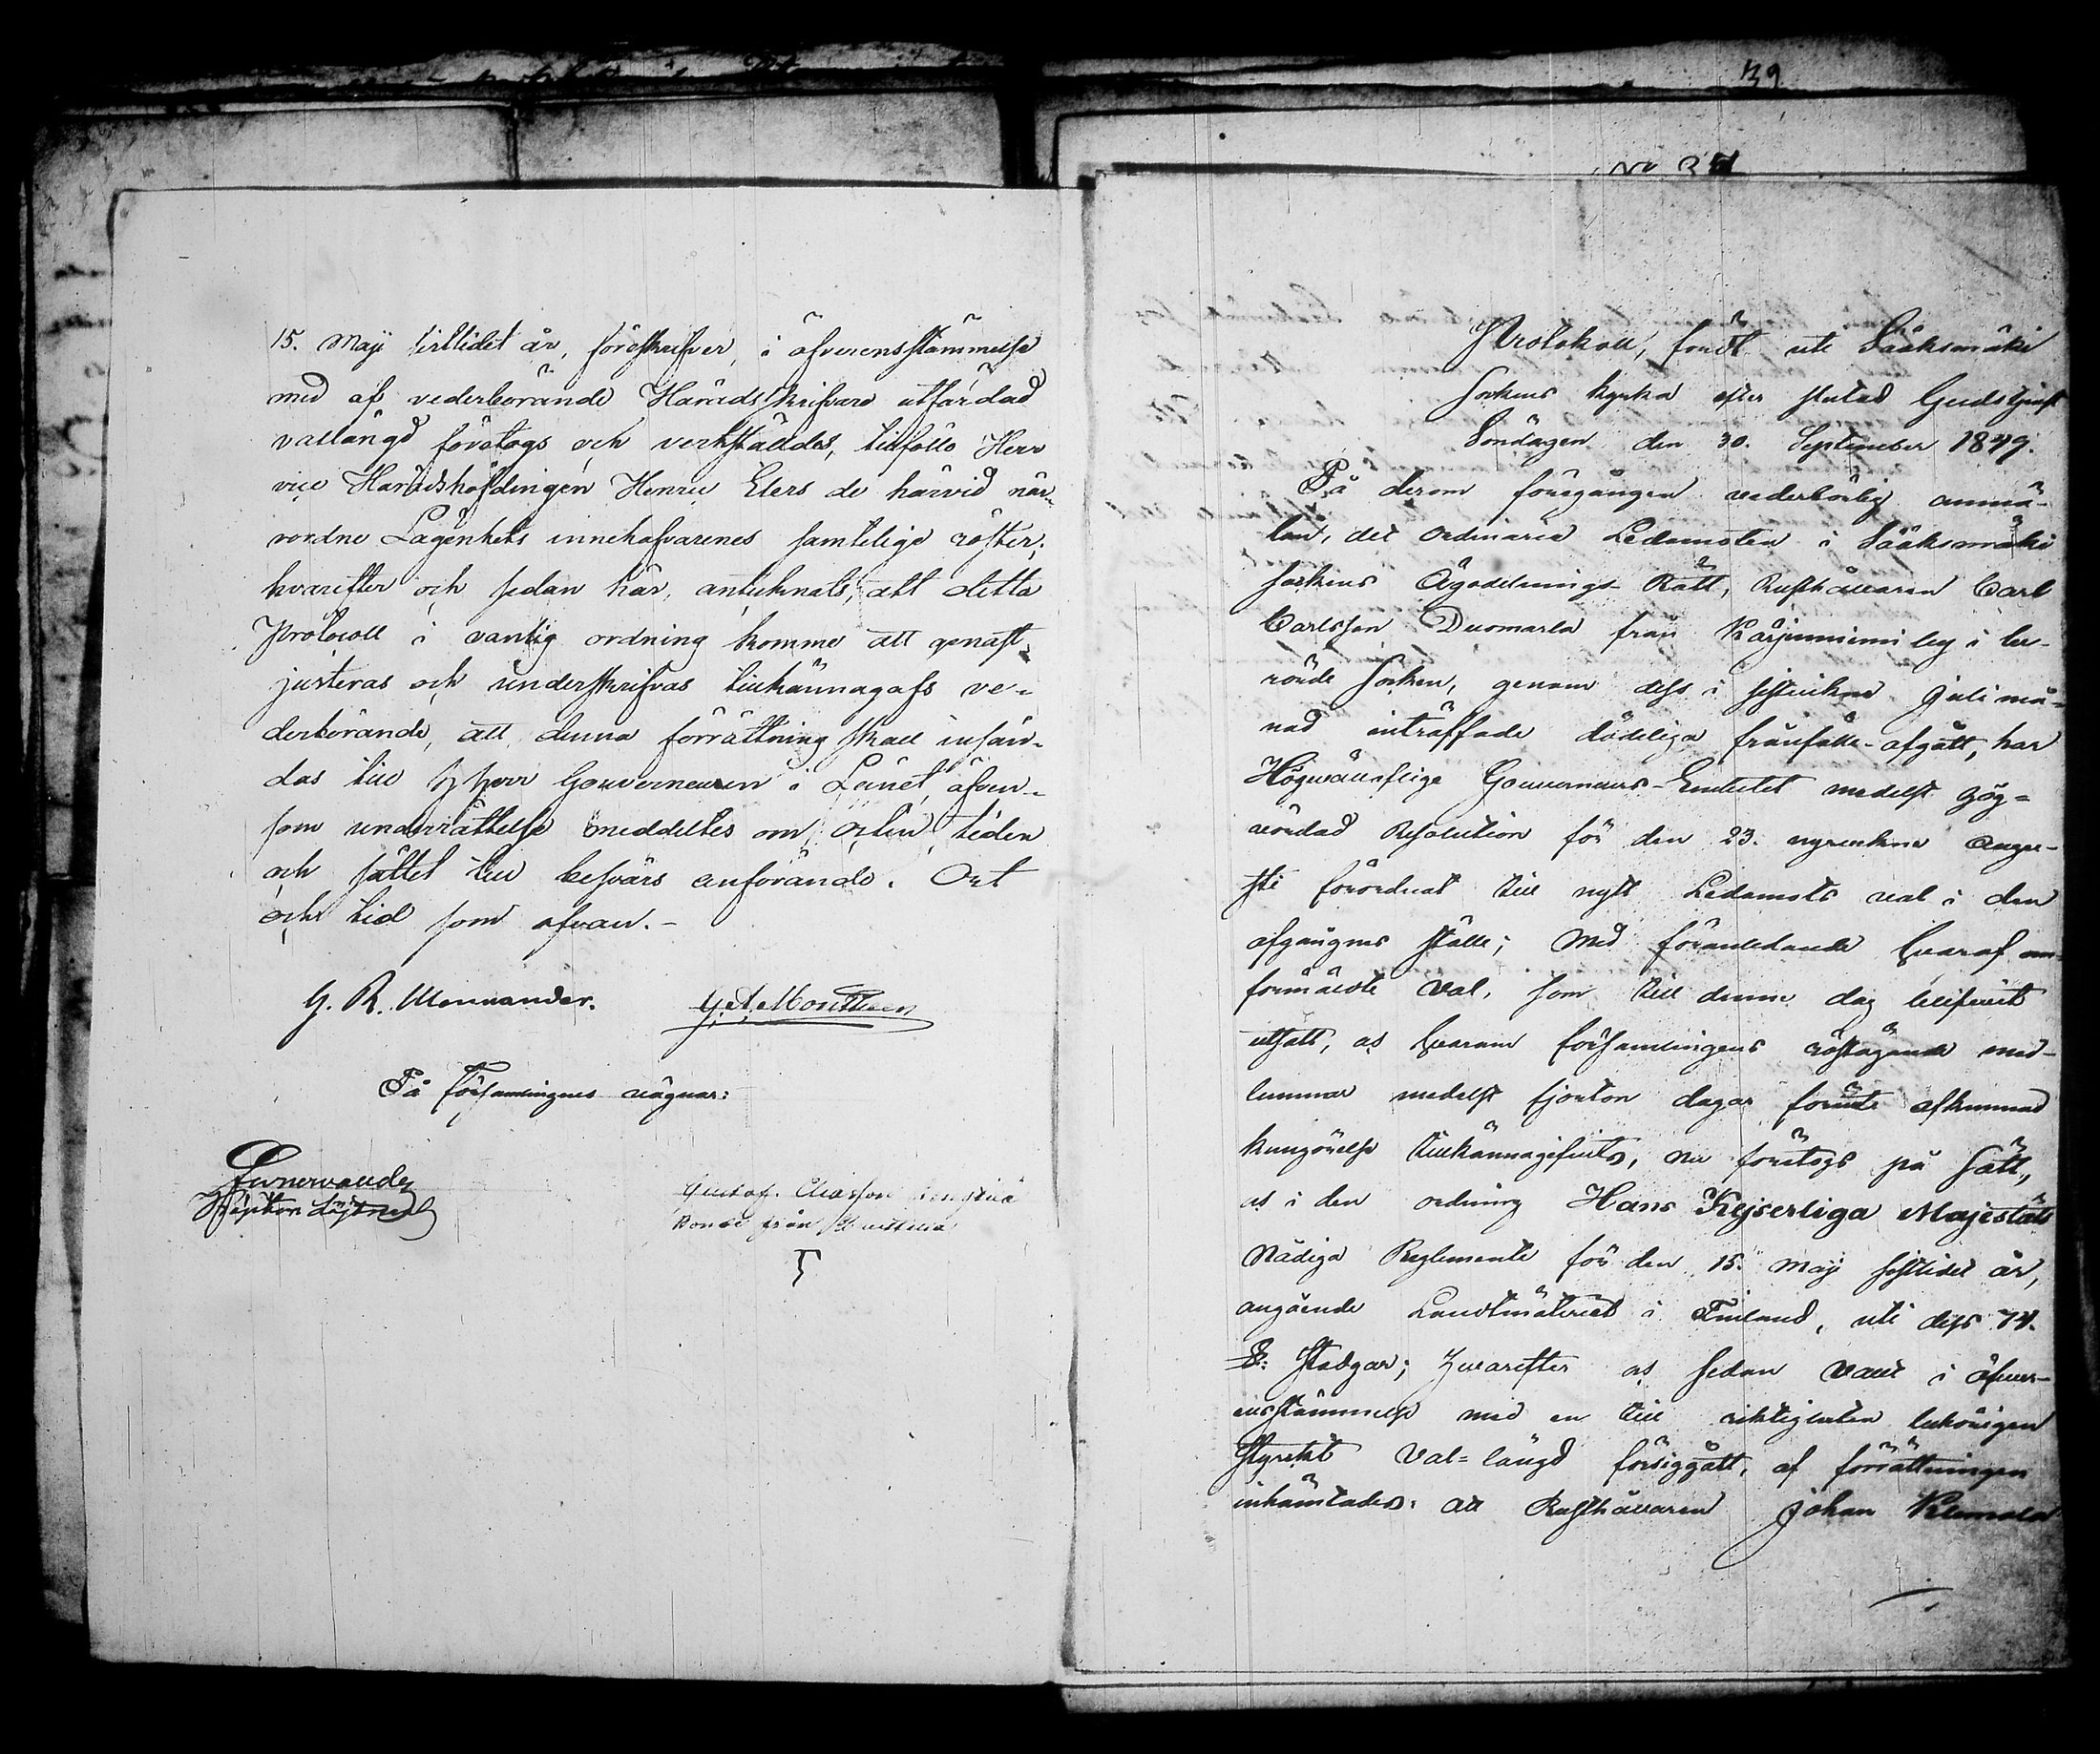 15. Maji sistlidet år, föreskrifver, i öfverensstämmelse
med af vederbörande Häradsskrifvare utfärdad
vallängd företogs och verkställdes, tillföllo Herr
vice Häradshöfdingen Henric Elers de härvid när-
vordne Lägenhets innehafvarenes samtelige röster;
hvarefter och sedan här, antecknats, att detta
Protocoll i vanlig ordning komme att genast
justeras och underskrifvas tillkännagafs ve-
derbörande, att denna förrättning skall insän-
das till Herr Gouverneuren i Länet, äfven-
som underrättelse meddeltes om orten, tiden
och sättet till besvärs anförande. Ort
och tid som ofvan.-
G. R. Mennander.
G. A. Montheen
På Församlingens vägnar:
Gustaf
Bonde från
39
No 341
Protokoll, fördt uti Sääksmäki
Sockens kyrka efter slutad Gudstjenst
Söndagen den 30. September 1849.
På derom föregången vederbörlig anmä-
lan, det ordinarie Ledamoten i Sääksmäki
Sockens Ägodelnings-Rätt, Rusthållaren Carl
Carlsson Duomarla från Kärjenniemi by i be-
rörde Socken, genom dess i sistvikne Juli må-
nad inträffade dödeliga frånfälle-afgått, har
Högvälloflige Gouverneurs-Embetet medelst hög-
vördad Resolution för den 23. nyvikne Augu-
sti förordnat till nytt Ledamots val i den
afgångnes ställe; Med föranledande hvaraf om-
förmälde val, som till denne dag blifvit
utsatt, och hvarom församlingens röstägande med-
lemmar medelst fjorton dagar förut afkunnad
kungörelse tillkännagifvits, nu företogs på sätt,
och i den ordning Hans Kejserliga Majestäts
Nådiga Reglemente för den 15. Maji sistlidet år,
angående Landtmäteriet i Finland, uti dess 74.
§: stadgar; Hvarefter och sedan valet i öfver-
ensstämmelse med en till riktigheten behörigen
styrkt Val-längd försiggått, af förrättningen
inhämtades: att Rusthållaren Johan Klemola